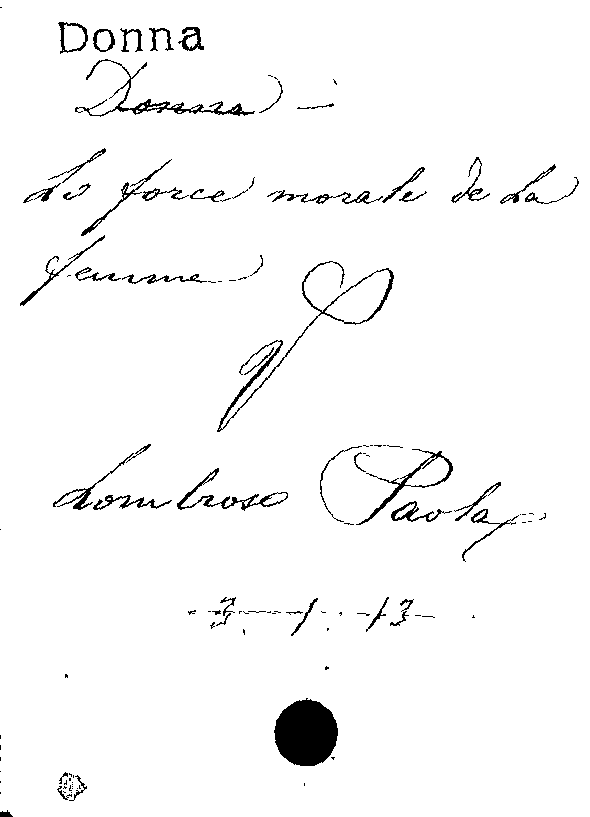 Donna
Donna —
La force morale de la
femme
V
Lombroso Paola
3 - 1 - 13